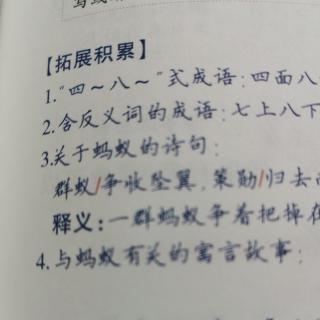 【拓展积累】
1.“四～八～”式成语：四面八
2.含反义词的成语：七上八下
3.关于蚂蚁的诗句：
群蚁/争收坠翼，策勋/归去
释义：一群蚂蚁争着把掉在
4.与蚂蚁有关的寓言故事：